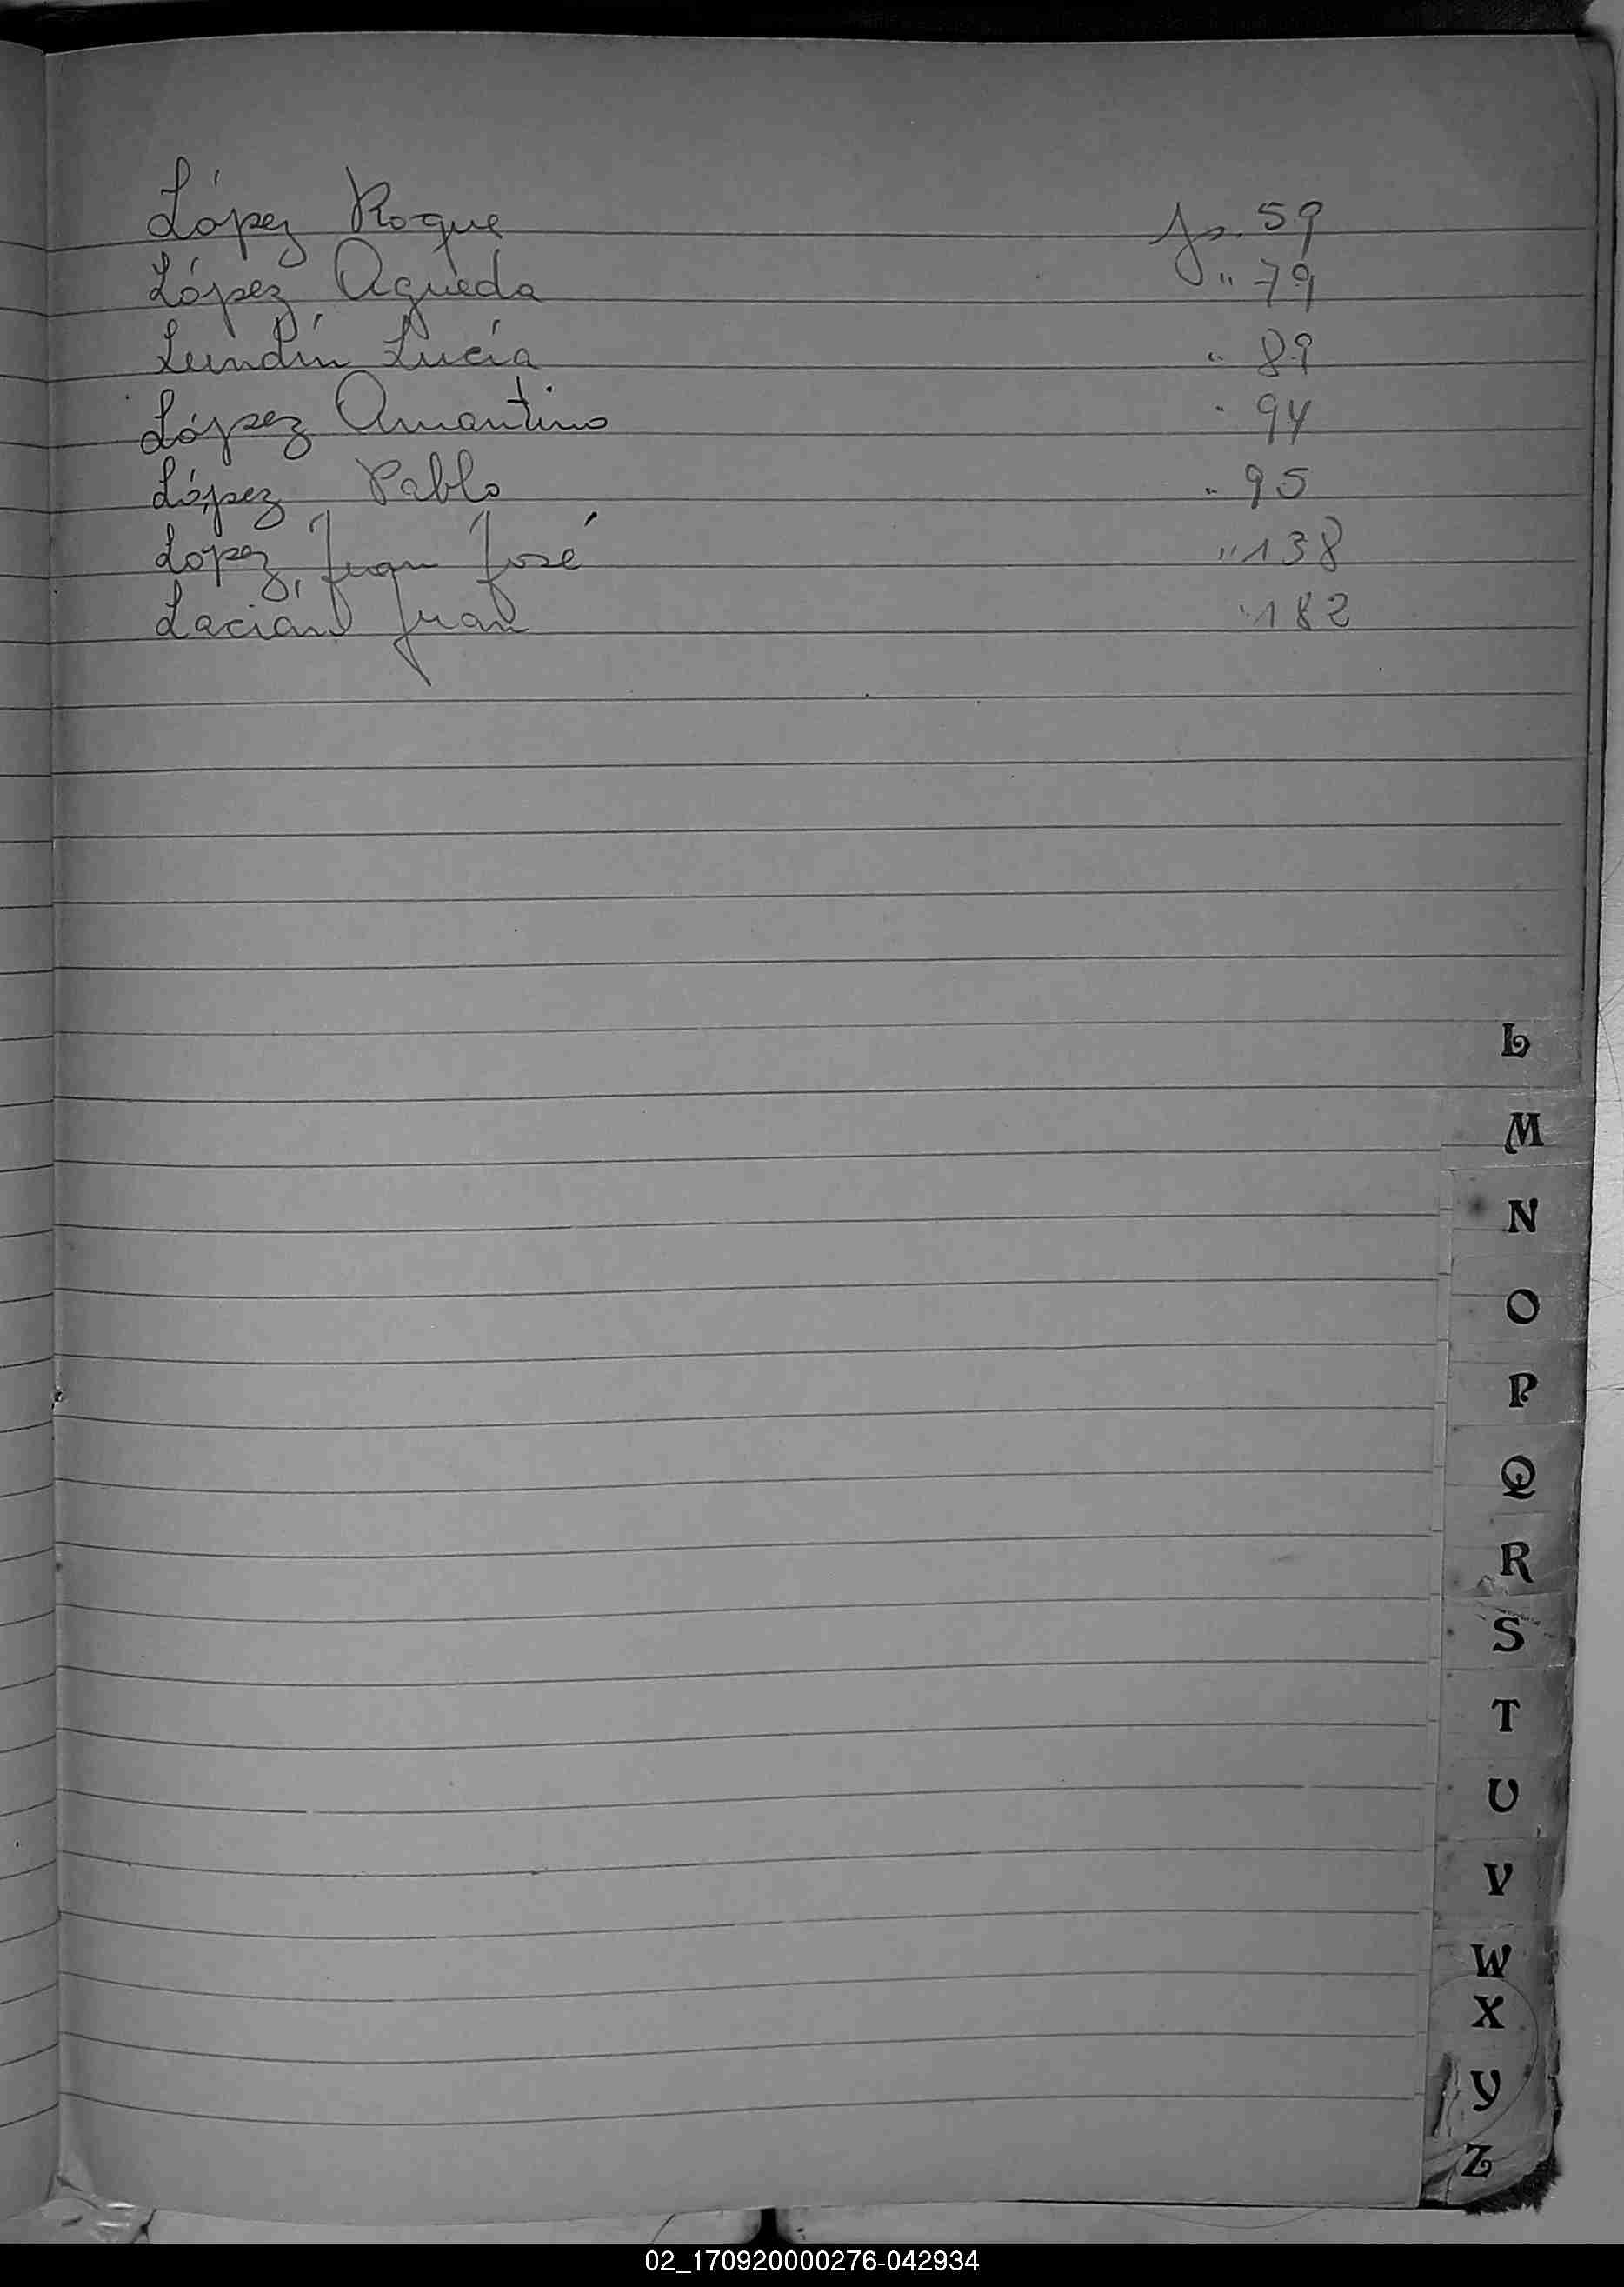 López Roque fs. 59
López Agueda " 79
Lundín Lucía " 89
López Amantino " 94
López Pablo " 95
Lopez, Juan José " 138
Lacian Juan " 182
L
M
N
O
P
Q
R
S
T
U
V
W
X
Y
Z
02_170920000276-042934